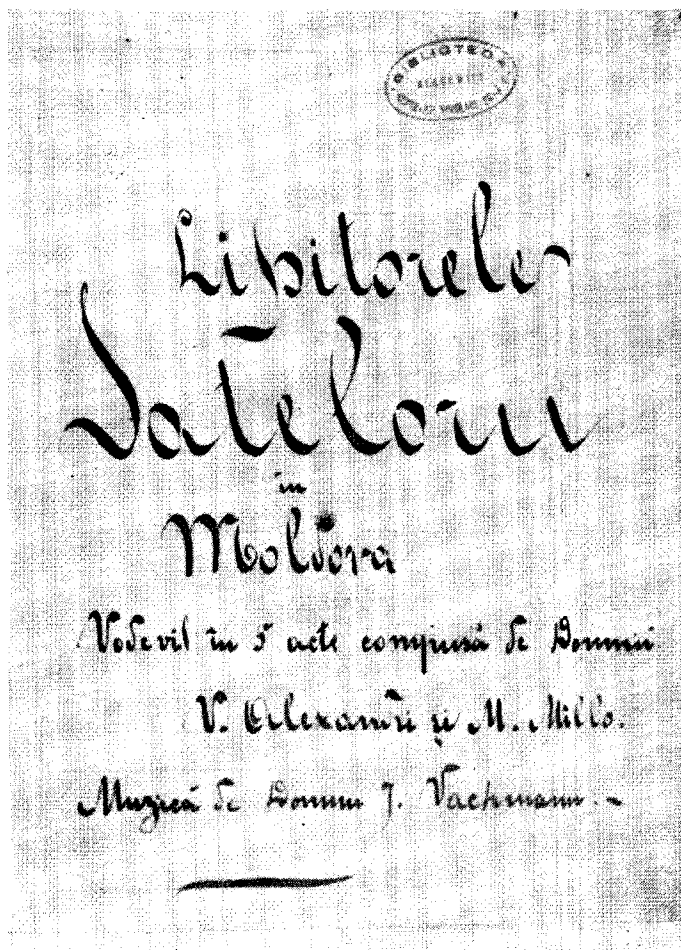 BIBLIOTECA
ACADEMIEI
Lipitorele
Satelorŭ
în
Moldova
Vodevil în 5 acte compusă de Domnii
V. Alexandri și M. Millo.
Muzică de Domnu J. Vachmann. -